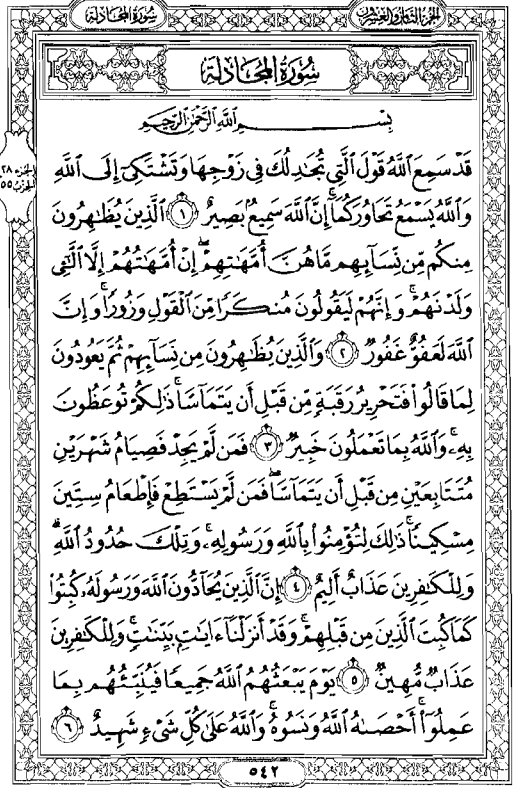 سُورَةُ المُجَادلة
الجزء الثامن والعشرون
سُورَةُ المُجَادلة
بِسْمِ اللَّهِ الرَّحْمَٰنِ الرَّحِيمِ
قَدْ سَمِعَ اللَّهُ قَوْلَ الَّتِي تُجَٰدِلُكَ فِي زَوْجِهَا وَتَشْتَكِيٓ إِلَى اللَّهِ
وَاللَّهُ يَسْمَعُ تَحَاوُرَكُمَآ ۚ إِنَّ اللَّهَ سَمِيعٌۢ بَصِيرٌ ١ الَّذِينَ يُظَٰهِرُونَ
مِنكُم مِّن نِّسَآئِهِم مَّا هُنَّ أُمَّهَٰتِهِمْ ۖ إِنْ أُمَّهَٰتُهُمْ إِلَّا الَّٰٓـِٔي
وَلَدْنَهُمْ ۚ وَإِنَّهُمْ لَيَقُولُونَ مُنكَرًا مِّنَ الْقَوْلِ وَزُورًا ۚ وَإِنَّ
اللَّهَ لَعَفُوٌّ غَفُورٌ ٢ وَالَّذِينَ يُظَٰهِرُونَ مِن نِّسَآئِهِمْ ثُمَّ يَعُودُونَ
لِمَا قَالُوا۟ فَتَحْرِيرُ رَقَبَةٍ مِّن قَبْلِ أَن يَتَمَآسَّا ۚ ذَٰلِكُمْ تُوعَظُونَ
بِهِۦ ۚ وَاللَّهُ بِمَا تَعْمَلُونَ خَبِيرٌ ٣ فَمَن لَّمْ يَجِدْ فَصِيَامُ شَهْرَيْنِ
مُتَتَابِعَيْنِ مِن قَبْلِ أَن يَتَمَآسَّا ۖ فَمَن لَّمْ يَسْتَطِعْ فَإِطْعَامُ سِتِّينَ
مِسْكِينًا ۚ ذَٰلِكَ لِتُؤْمِنُوا۟ بِاللَّهِ وَرَسُولِهِۦ ۚ وَتِلْكَ حُدُودُ اللَّهِ ۗ
وَلِلْكَٰفِرِينَ عَذَابٌ أَلِيمٌ ٤ إِنَّ الَّذِينَ يُحَآدُّونَ اللَّهَ وَرَسُولَهُۥ كُبِتُوا۟
كَمَا كُبِتَ الَّذِينَ مِن قَبْلِهِمْ ۚ وَقَدْ أَنزَلْنَآ ءَايَٰتٍۭ بَيِّنَٰتٍ ۚ وَلِلْكَٰفِرِينَ
عَذَابٌ مُّهِينٌ ٥ يَوْمَ يَبْعَثُهُمُ اللَّهُ جَمِيعًا فَيُنَبِّئُهُم بِمَا
عَمِلُوٓا۟ ۚ أَحْصَىٰهُ اللَّهُ وَنَسُوهُ ۚ وَاللَّهُ عَلَىٰ كُلِّ شَىْءٍ شَهِيدٌ ٦
الجزء ٢٨
الحزب ٥٥
٥٤٢